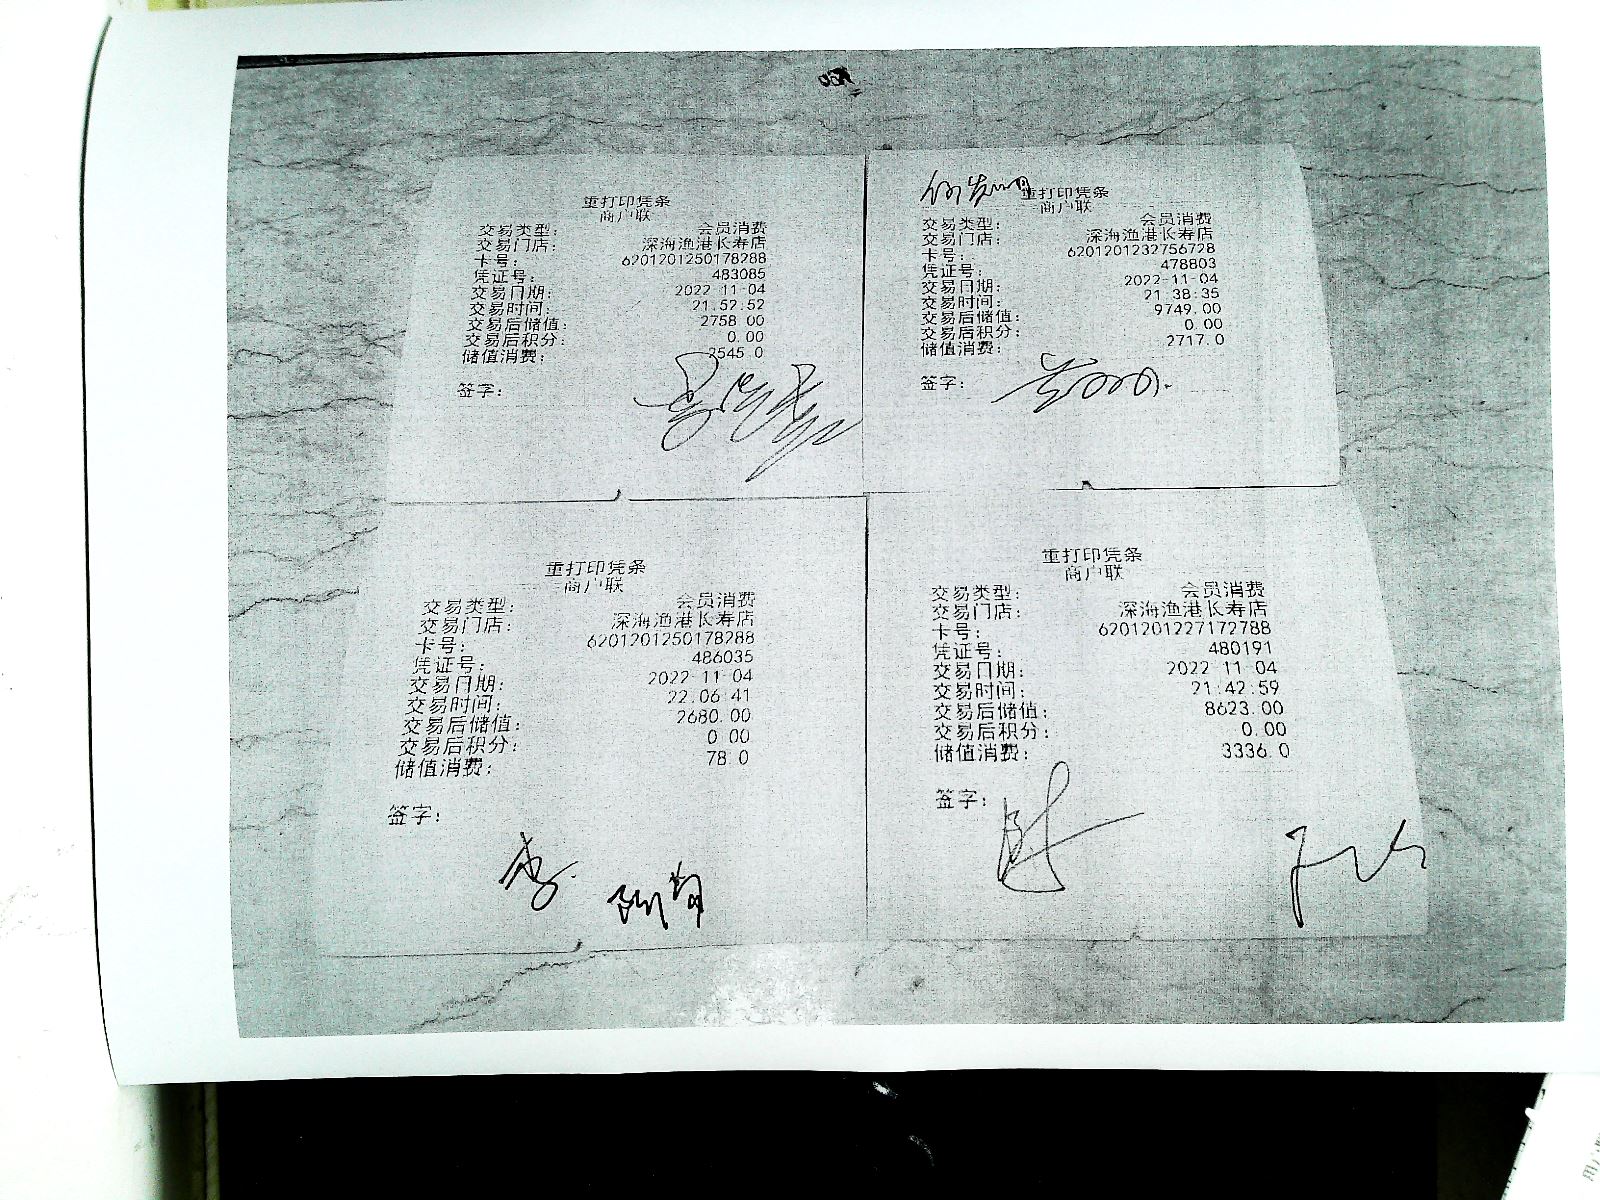 重打印凭条
商户联
交易类型： 会员消费
交易门店： 深海渔港长寿店
卡号： 6201201250178288
凭证号： 483085
交易日期： 2022-11-04
交易时间： 21:52:52
交易后储值： 2758.00
交易后积分： 0.00
储值消费： 2545.0
签字：
重打印凭条
商户联
交易类型： 会员消费
交易门店： 深海渔港长寿店
卡号： 6201201232756728
凭证号： 478803
交易日期： 2022-11-04
交易时间： 21:38:35
交易后储值： 9749.00
交易后积分： 0.00
储值消费： 2717.0
签字：
重打印凭条
商户联
交易类型： 会员消费
交易门店： 深海渔港长寿店
卡号： 6201201250178288
凭证号： 486035
交易日期： 2022-11-04
交易时间： 22:06:41
交易后储值： 2680.00
交易后积分： 0.00
储值消费： 78.0
签字：
重打印凭条
商户联
交易类型： 会员消费
交易门店： 深海渔港长寿店
卡号： 6201201227172788
凭证号： 480191
交易日期： 2022-11-04
交易时间： 21:42:59
交易后储值： 8623.00
交易后积分： 0.00
储值消费： 3336.0
签字：